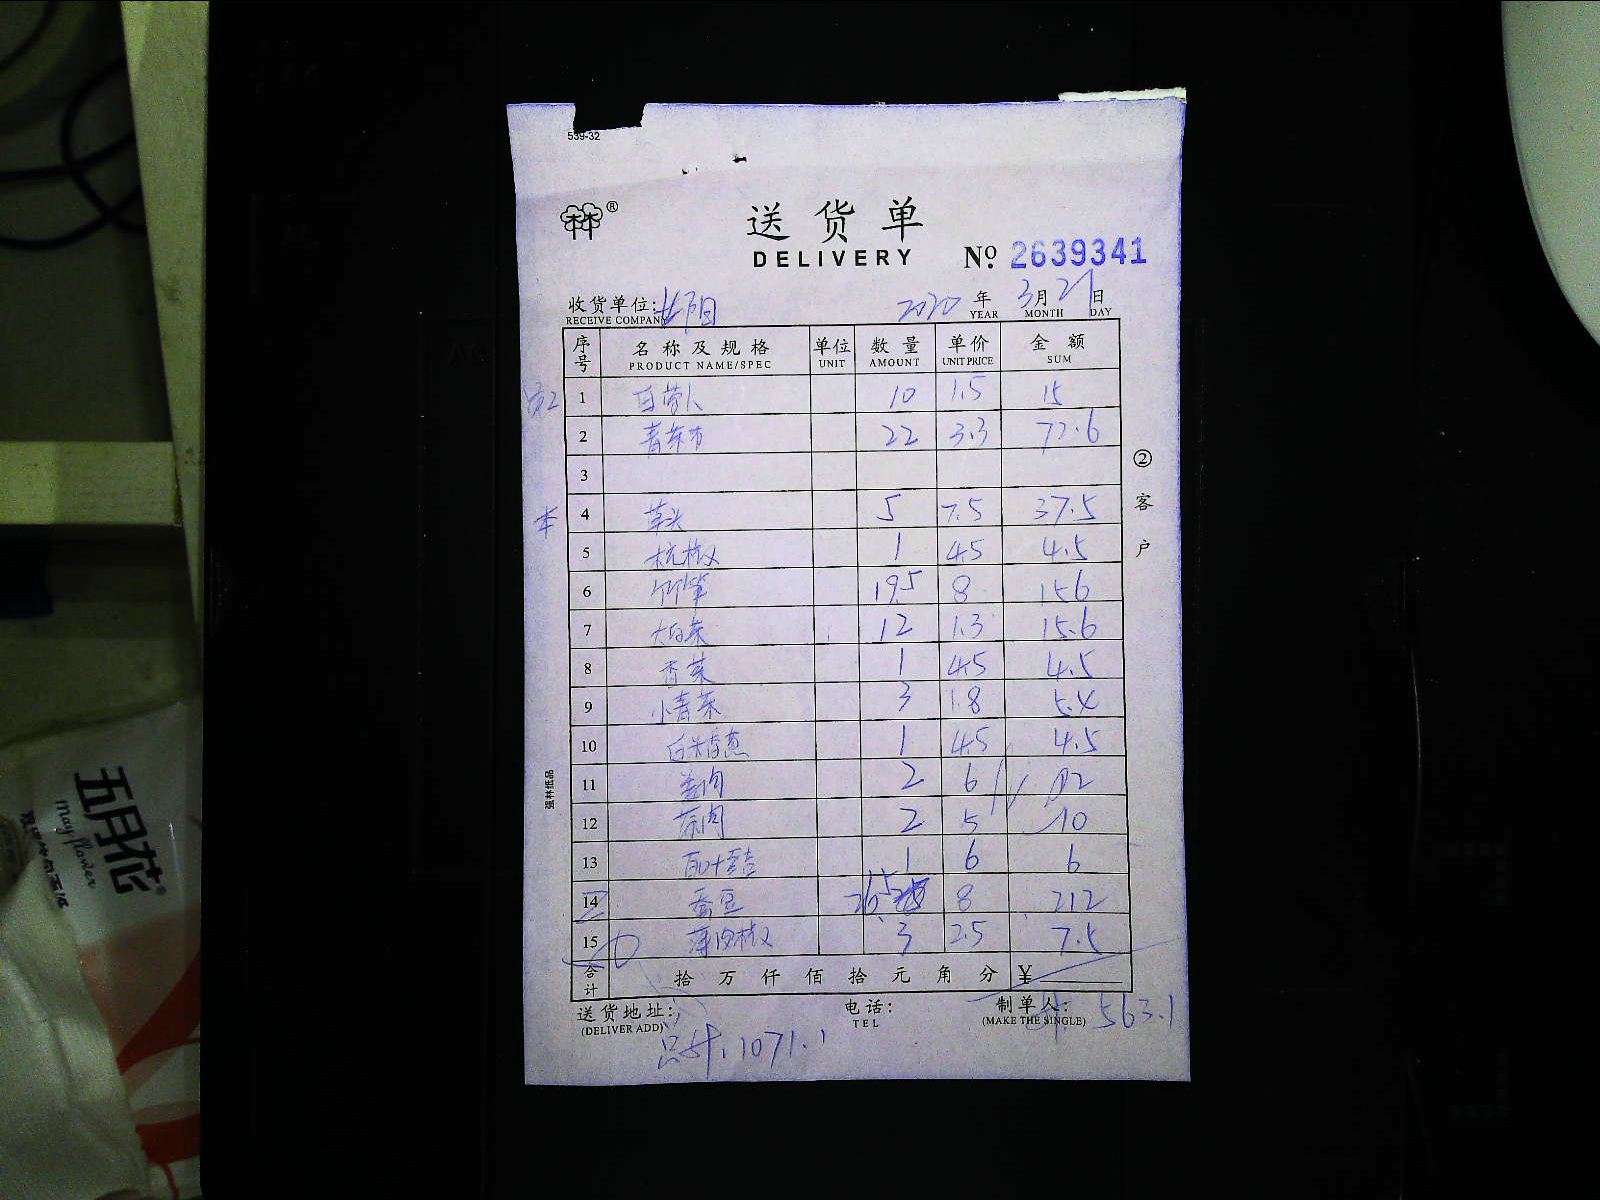 539-32
®
送货单
DELIVERY
No. 2639341
收货单位:
RECEIVE COMPANY
2020 年 3月 21日
YEAR MONTH DAY
序号 名称及规格 单位 数量 单价 金额
PRODUCT NAME/SPEC UNIT AMOUNT UNIT PRICE SUM
1 10 1.5 15
2 22 3.3 72.6
3
4 草头 5 7.5 37.5
5 杭椒 1 4.5 4.5
6 19.5 8 156
7 大白菜 12 1.3 15.6
8 香菜 1 4.5 4.5
9 小青菜 3 1.8 5.4
10 1 4.5 4.5
11 2 6 12
12 2 5 10
13 1 6 6
14 蚕豆 26.5 8 212
15 薄皮椒 3 2.5 7.5
合计 拾万仟佰拾元角分 ¥
送货地址:
(DELIVER ADD)
电话:
TEL
制单人:
(MAKE THE SINGLE)
563.1
总计:1071.1
② 客户
强林纸品
五月花®
Mayflower